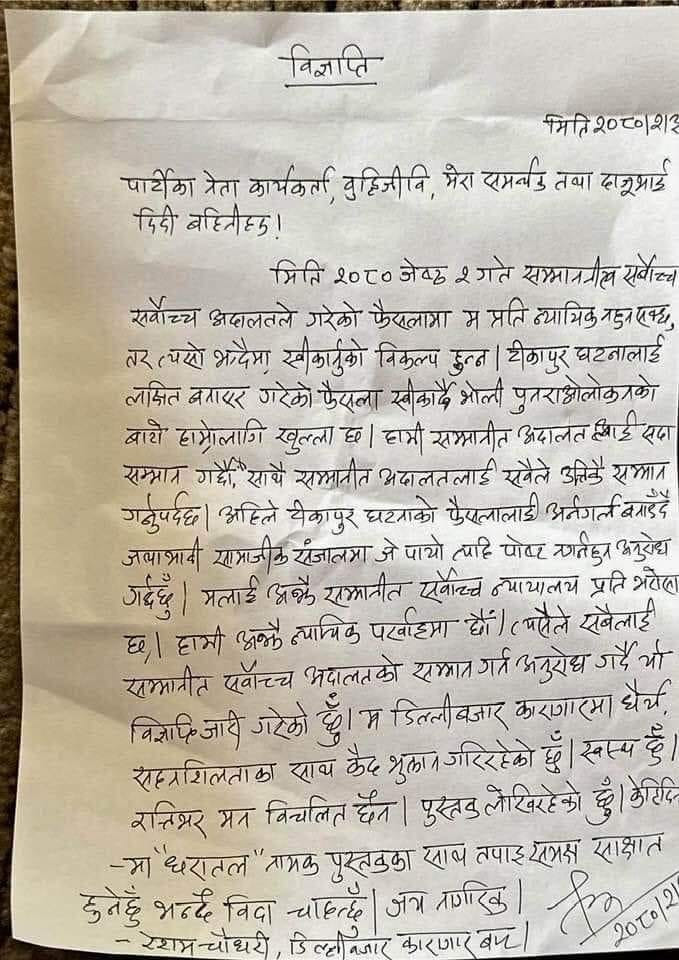 विज्ञप्ति
मिति २०८०।२।३
पार्टीका नेता कार्यकर्ता, वुद्धिजीवि, मेरा समर्थक तथा दाजुभाई
दिदी बहिनीहरु!
मिति २०८० जेष्ठ २ गते सम्माननीय सर्वोच्च
सर्वोच्च अदालतले गरेको फैसलामा म प्रति न्यायिक नहुन सक्छ,
तर त्यसो भन्दैमा स्वीकार्नुको विकल्प हुन्न। टीकापुर घटनालाई
लक्षित बनाएर गरेको फैसला स्वीकार्दै भोली पुनरावलोकनको
बाटो हाम्रोलागि खुल्ला छ। हामी सम्मानीत अदालत लाई सदा
सम्मान गर्दछौं, साथै सम्मानीत अदालतलाई सवैले उत्तिकै सम्मान
गर्नुपर्दछ। अहिले टीकापुर घटनाको फैसलालाई अर्नगर्ल बनाउँदै
जथाभावी सामाजीक संजालमा जे पायो त्यहि पोष्ट नगर्नहुन अनुरोध
गर्दछुँ। मलाई अझै सम्मानीत सर्वोच्च न्यायालय प्रति भरोसा
छ,। हामी अझै न्यायिक परर्वाइमा छौं। त्यसैले सबैलाई
सम्मानीत सर्वोच्च अदालतको सम्मान गर्न अनुरोध गर्दै यो
विज्ञप्ति जारी गरेको छुँ। म डिल्लीबजार कारागारमा धैर्य,
सहनशिलताका साथ कैद भुक्तान गरिरहेको छुँ। स्वस्थ छुँ।
रत्तिभर मन विचलित छैन। पुस्तक लेखिरहेको छुँ। केहिदिन
-मा "धरातल" नामक पुस्तकका साथ तपाइ समक्ष साक्षात
हुनेछुँ भन्दै विदा चाहन्छुँ। जय नागरिक।
- रेशम चौधरी, डिल्लीबजार कारागार बाट।
२०८०।२।